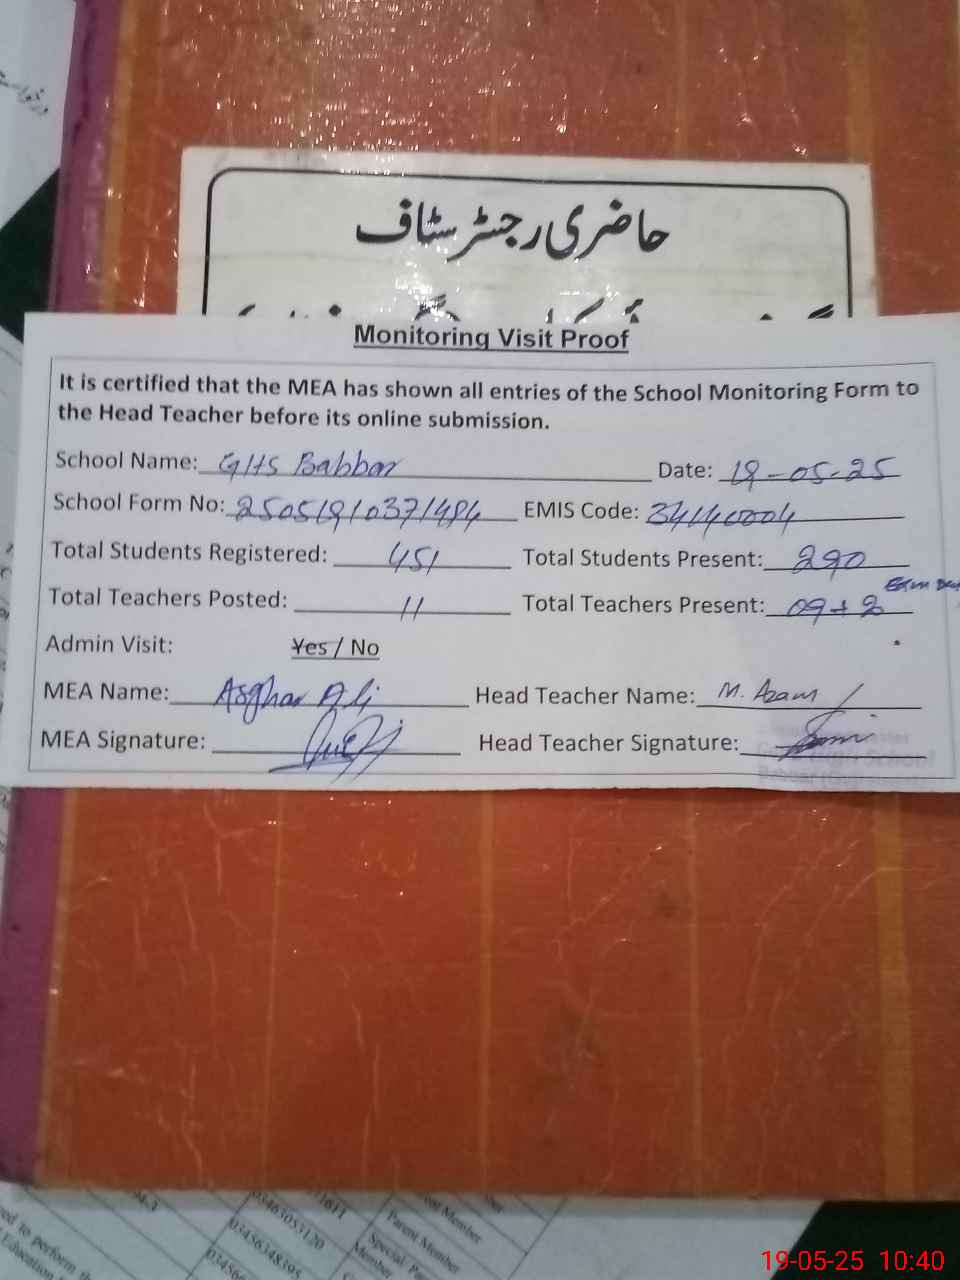 درخواست
حاضری رجسٹر سٹاف
Monitoring Visit Proof
It is certified that the MEA has shown all entries of the School Monitoring Form to
the Head Teacher before its online submission.
School Name: GHS Babbar Date: 19-05-25
School Form No: 25051910371484 EMIS Code: 34140004
Total Students Registered: 451 Total Students Present: 290
Total Teachers Posted: 11 Total Teachers Present: 09+2 Exam
Admin Visit: Yes / No
MEA Name: Asghar Ali Head Teacher Name: M. Azam
MEA Signature: Head Teacher Signature:
High School
03463053120
03456348395
Parent Member
Special
Member
to perform
Education
19-05-25 10:40